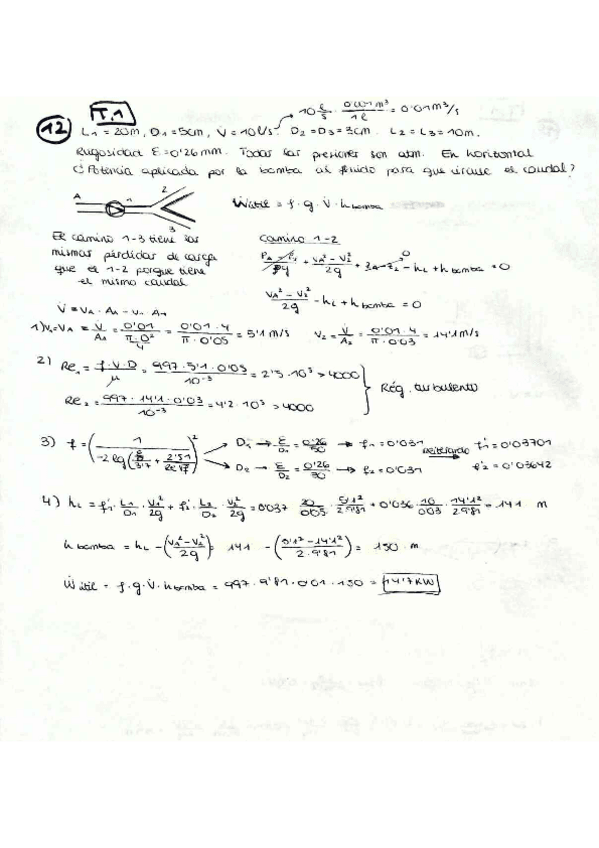 T.1
10 l/s · 0'001 m³/1 l = 0'01 m³/s
12 L1 = 20m, D1 = 5cm, V̇ = 10 l/s. D2 = D3 = 3cm. L2 = L3 = 10m.
Rugosidad ε = 0'26 mm. Todas las presiones son atm. En horizontal
¿Potencia aplicada por la bomba al fluido para que circule el caudal?
A 1 2 3 Ẇútil = ρ·g·V̇·hbomba
El camino 1-3 tiene las camino 1-2
mismas pérdidas de carga
que el 1-2 porque tiene
el mismo caudal
(VA² − V2²)/2g + zA − z2 − hL + hbomba = 0
(VA² − V2²)/2g − hL + hbomba = 0
1) = VA = V̇/A1 = 0'01/(π·D²/4) = 0'01·4/(π·0'05) = 5'1 m/s V2 = V̇/A2 = 0'01·4/(π·0'03) = 14'1 m/s
2) Re1 = ρ·V·D/μ = 997·5'1·0'05/10⁻³ = 2'5·10⁵ > 4000
Re2 = 997·14'1·0'03/10⁻³ = 4'2·10⁵ > 4000
Rég. turbulento
3) f = (1/(−2 lg(ε/D/3'7 + 2'51/(Re√f))))² D1 → ε/D1 = 0'26/50 → f1 = 0'031 f1' = 0'03701
D2 → ε/D2 = 0'26/30 → f2 = 0'031 f2' = 0'03642
4) hL = f1'·L1/D1·V1²/2g + f2'·L2/D2·V2²/2g = 0'037 20/0'05·5'1²/2·9'81 + 0'036·10/0'03·14'1²/2·9'81 = 141 m
hbomba = hL − (VA² − V2²/2g) = 141 − (5'1² − 14'1²/2·9'81) = 150 m
Ẇútil = ρ·g·V̇·hbomba = 997·9'81·0'01·150 = 14'7KW